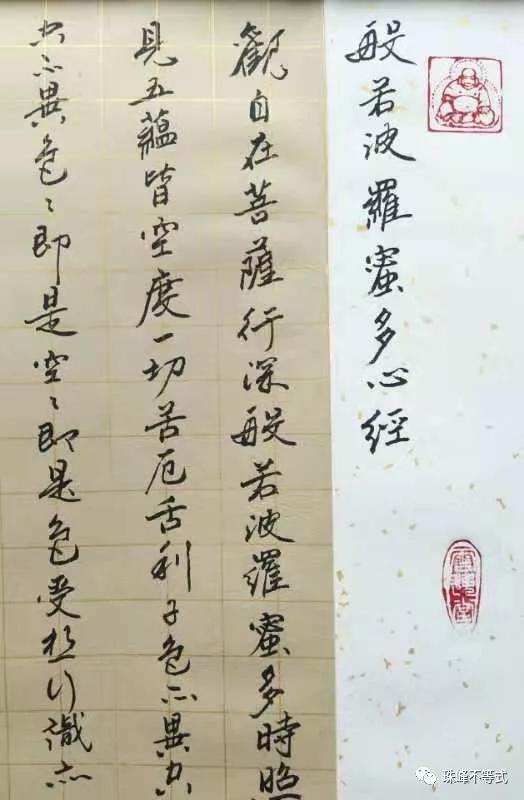 般若波羅蜜多心經
觀自在菩薩行深般若波羅蜜多時照
見五蘊皆空度一切苦厄舌利子色不異空
空不異色〻即是空〻即是色受想行識亦
珠峰不等式